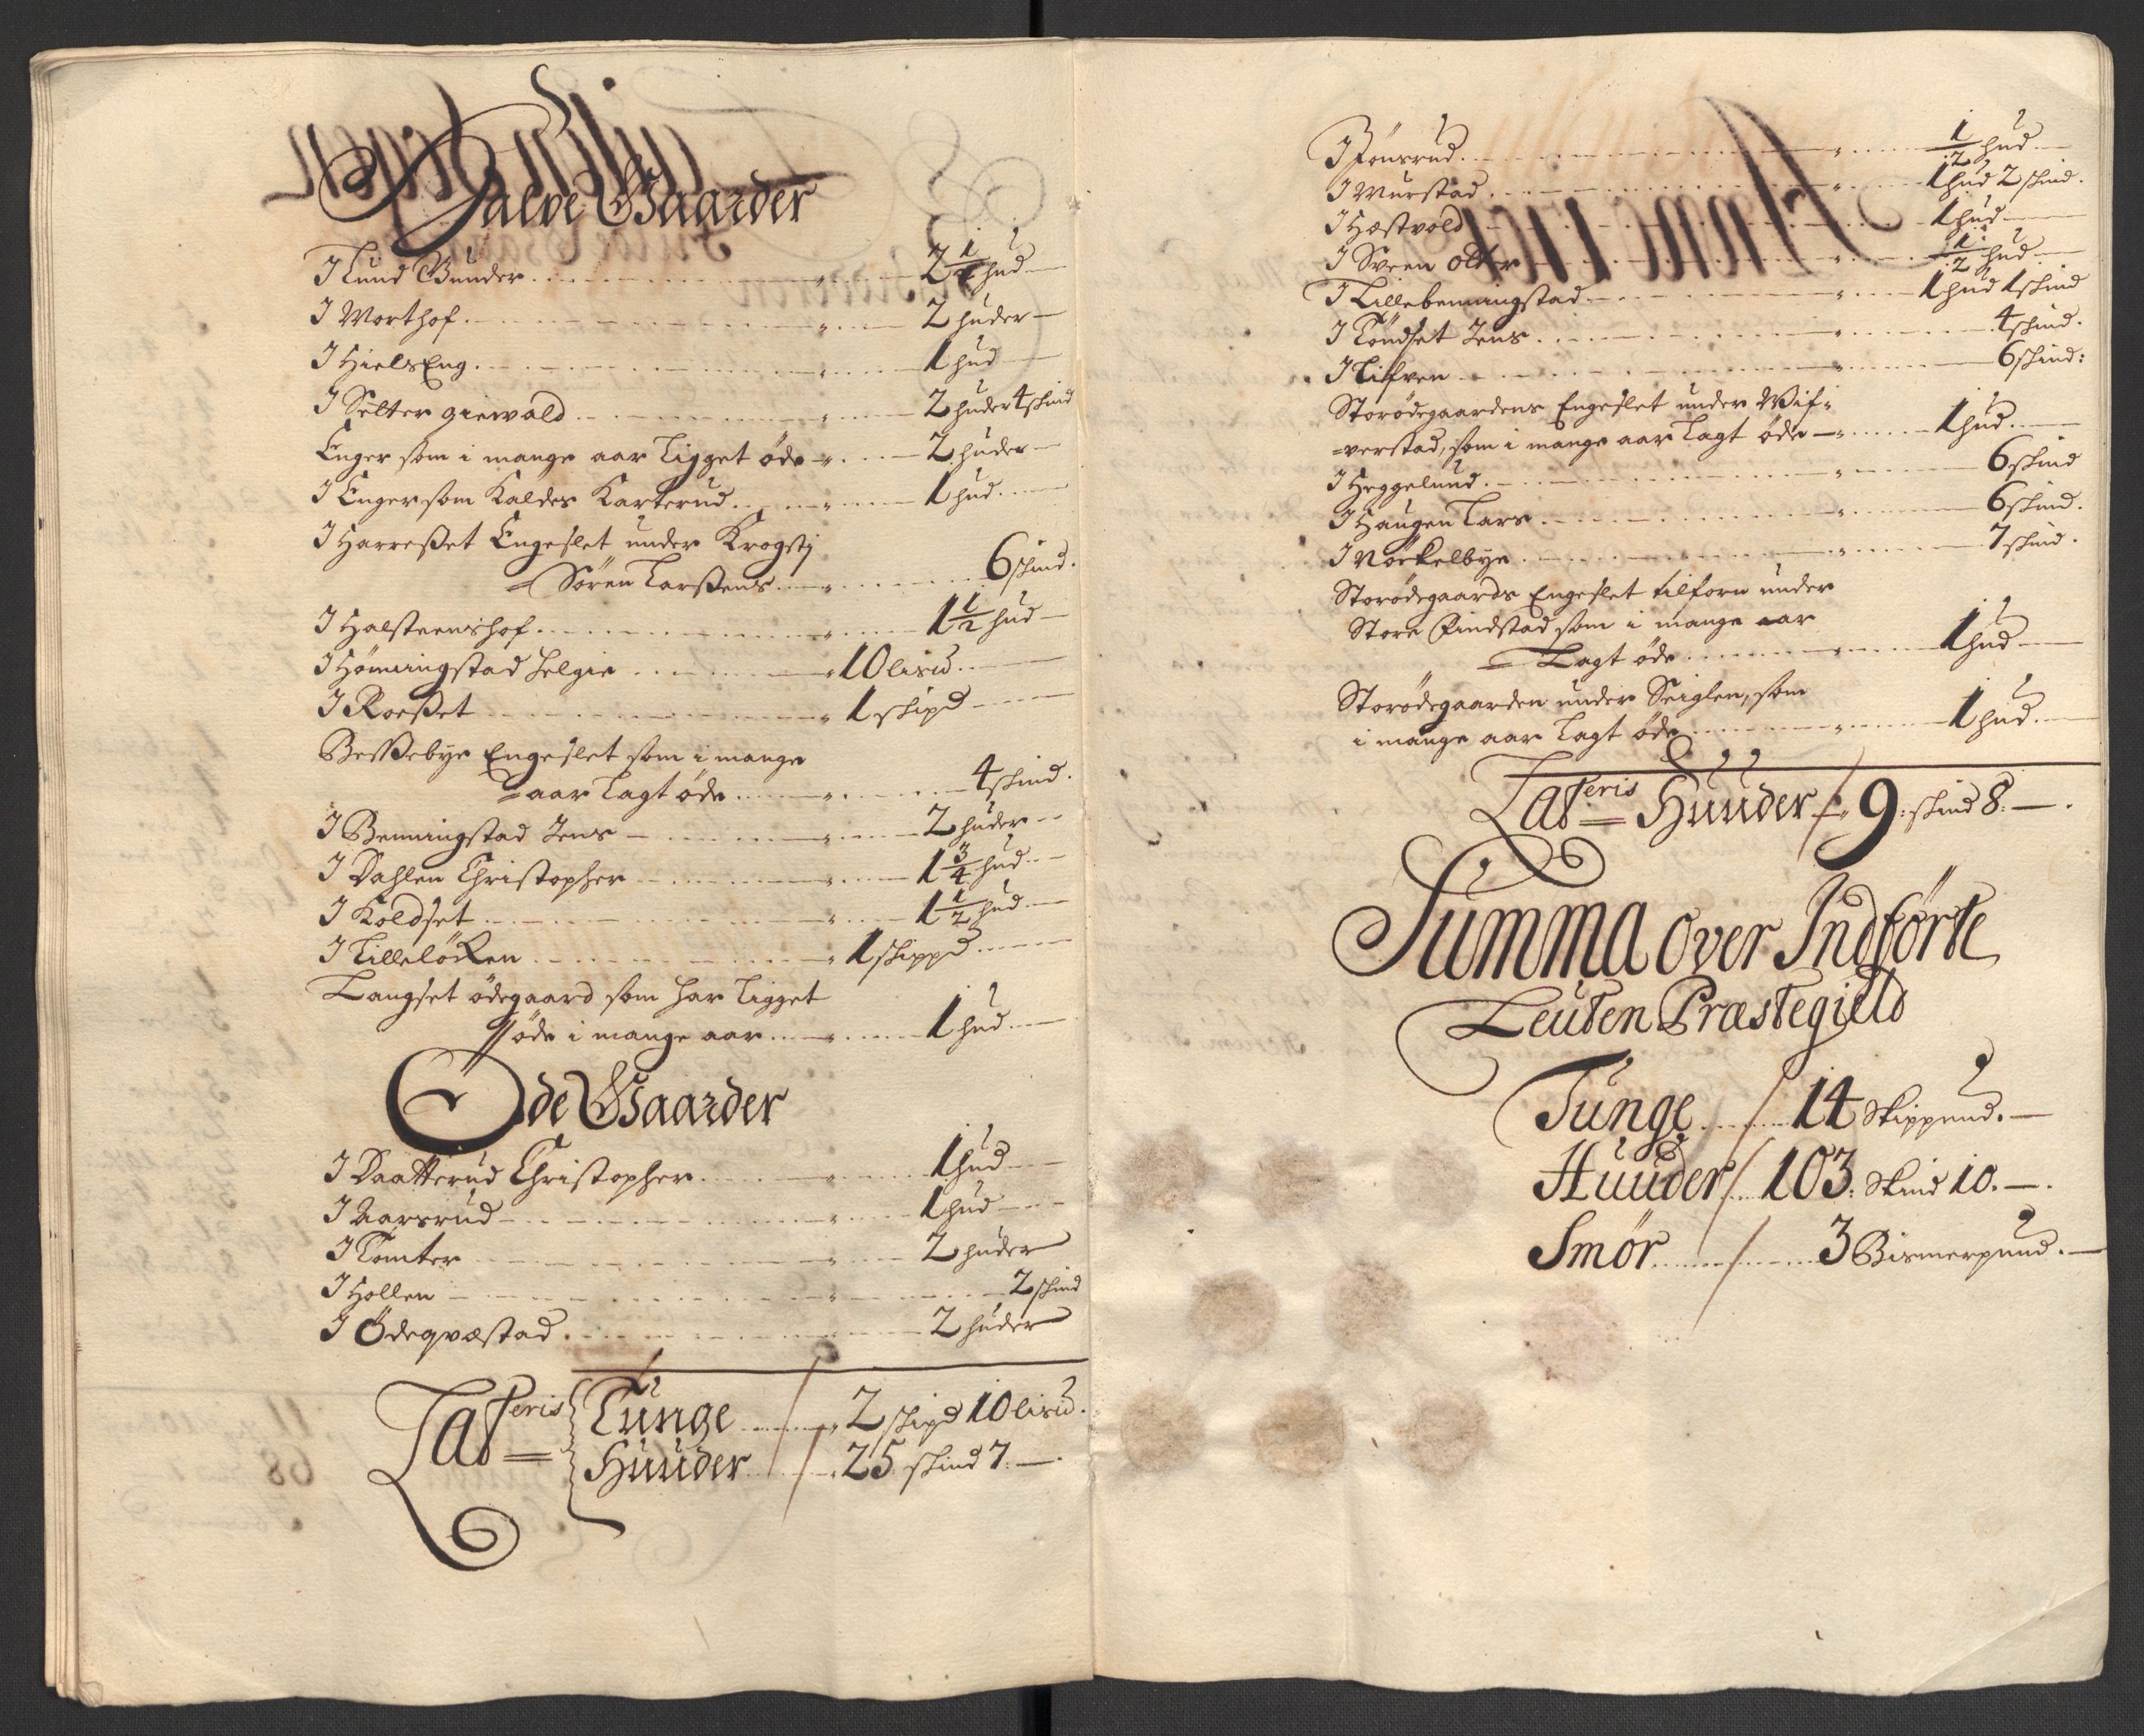 Halve Gaarder
I Lund Gunder 2 1/2 hud
I Worthof 2 huder
I HielsEng 1 hud
I Selter giewald 2 huder 4 skind
Enger som i mange aar ligget øde 2 huder
I Enger som Kaldes Karterud 1 hud
I Harresset Engeslet under Krogstj
Søren Larssens 6 skind.
I Halsteenshof 1 1/2 hud
I Hømingstad Helgie 10 lis℔
I Rosset 1 skipd
Bessebye Engeslet som i mange
aar Lagt øde 4 skind.
I Benningstad Jens 2 huder
I Dahlen Christopher 1 3/4 hud
I Koldset 1 1/2 hud
I Lilleløken 1 skippd
Langset ødegaard som har ligget
øde i mange aar 1 hud
Øde Gaarder
I Daatterud Christopher 1 hud
I Aarsrud 1 hud
I Tomter 2 huder
I Hollen 2 skind
I Ødeqvæstad 2 huder
Lateris Tunge 2 skipd 10 lis℔.
Huuder 25 skind 7.
I Fønsrud 1/2 hud
I Murstad 1 hud 2 skind.
I Hæstvold 1 hud
I Sveen Olter 1/2 hud
I Lillebenningstad 1 hud 1 skind
I Tøndset Jens 4 skind.
I Lifven 6 skind:
Storødegaardens Engeslet under Wif-
=verstad, som i mange aar Lagt øde 1 hud.
I Heggelund 6 skind
I Haugen Lars 6 skind.
I Nørkelbye 7 skind.
Storødegaards Engeslet tilforn under
Store Findstad som i mange aar
Lagt øde 1 hud
Storødegaarden under Seiglen, som
i mange aar Lagt øde 1 hud.
Lateris Huuder 9: skind 8.
Summa over Indførte
Leuten Præstegield
Tunge 14 Skippund.
Huuder 103: Skind 10.
Smør 3 Bismerpund.